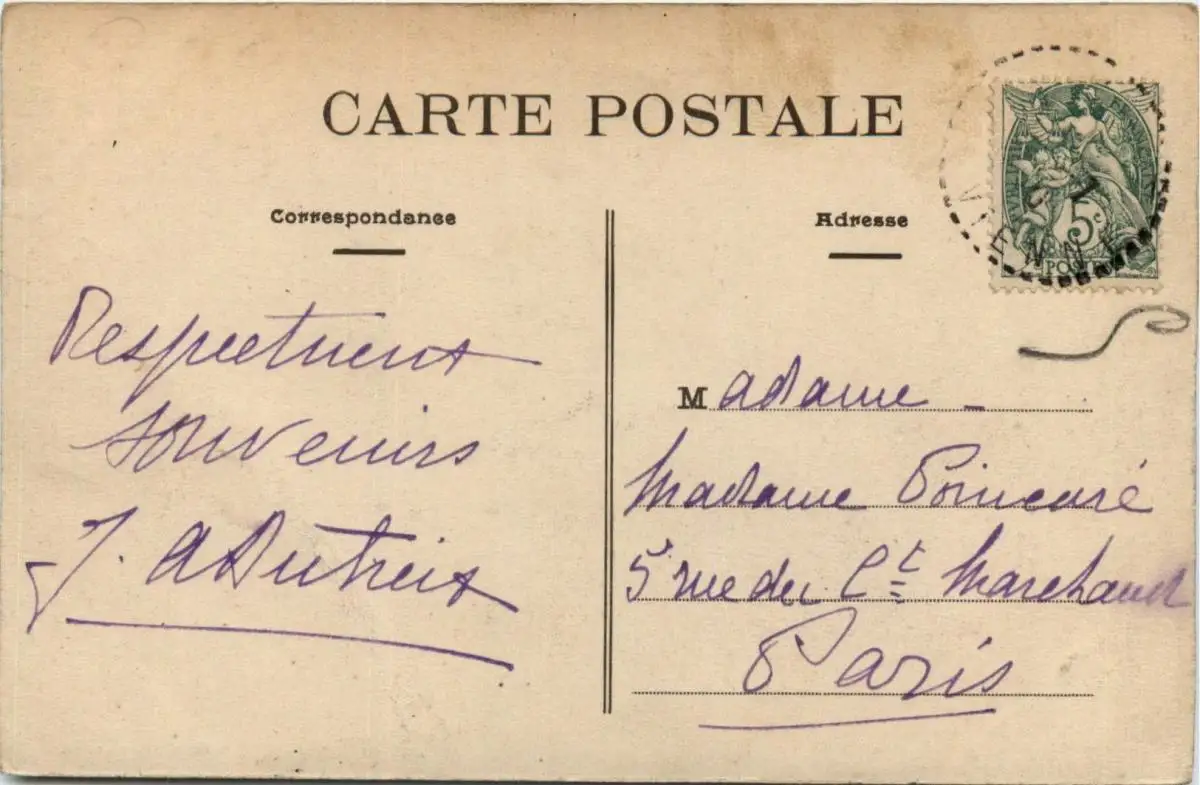 CARTE POSTALE
Correspondance
Adresse
Respectueux
souvenirs
J. A Dutreix
Madame
Madame Poincaré
5 rue du Ct Marchand
Paris
5c
POSTES
VIENNE